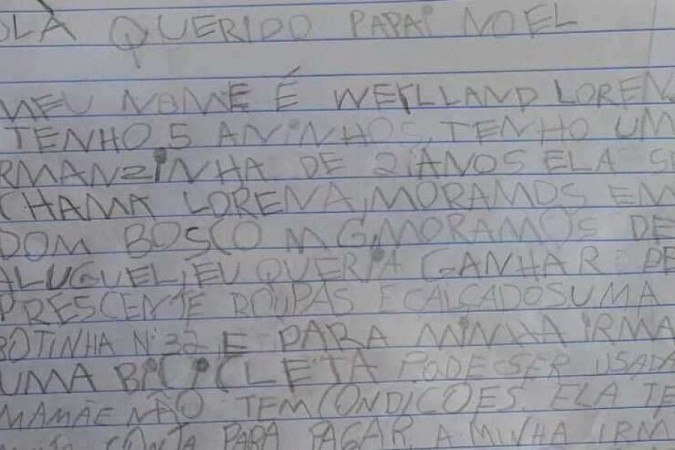 OLÁ QUERIDO PAPAI NOEL
MEU NOME É WERLLAND LOREN
TENHO 5 ANINHOS, TENHO UM
RMANZINHA DE 2 ANOS ELA S
CHAMA LORENA, MORAMOS EM
DOM BOSCO MG, MORAMOS DE
ALUGUEL, EU QUERIA GANHAR DE
PRESCENTE ROUPAS E CALÇADOS UMA
BOTINHA Nº 32 E PARA MINHA IRMA
UMA BICICLETA PODE SER USADA
MAMÃE NÃO TEM CONDICOES, ELA TE
CONTA PARA PAGAR. A MINHA IRM